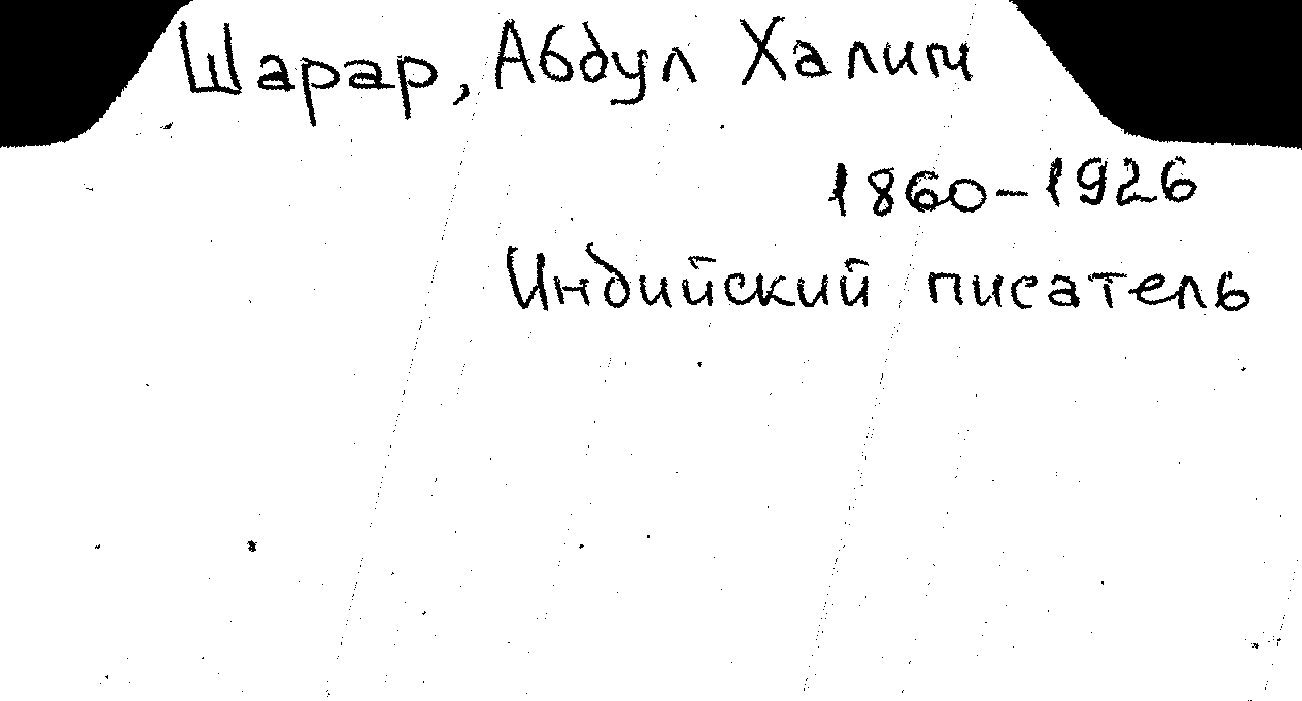 Шарар, Абдул Халим
1860-1926
Индийский писатель